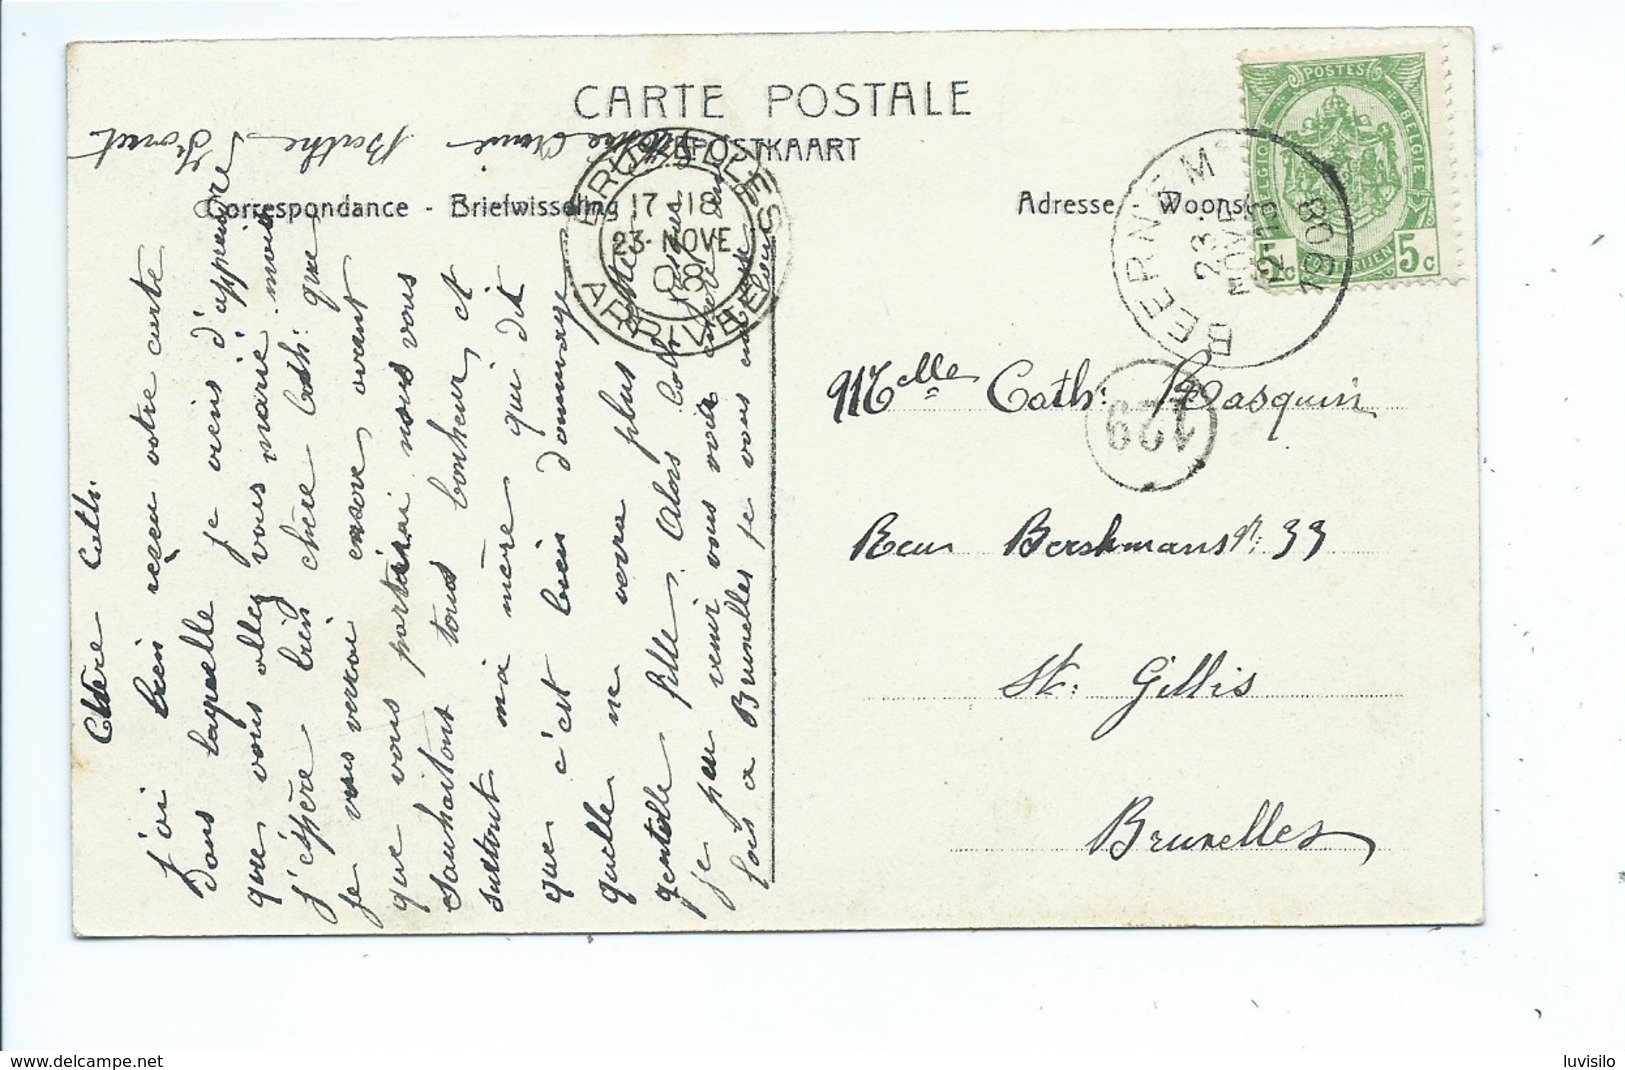 CARTE POSTALE
POSTKAART
Correspondance - Briefwisseling
Adresse - Woonst
POSTES
BELGIQUE
BELGIE
5c
5c
BEERNEM
23
NOVE
12-13
1908
BRUXELLES
17-18
23-NOVE
08
ARRIVEE
129
Melle Cath: Basquin
Rue Berskmans nr: 33
St. Gillis
Bruxelles
Chère Cath.
j'ai bien reçu votre carte
Dans laquelle je viens d'apprendre
que vous allez vous marié, mois
j'espère bien chère Cath: que
je vous verrai encore avant
que vous partirai nous vous
souhaitons tous bonheur et
surtout ma mère qui dit
que c'est bien dommage
quelle ne verra plus
gentille fille. Alors Cath
je peu venir vous voir
fois a Bruxelles je vous
amie Berthe Honet
www.delcampe.net
luvisilo